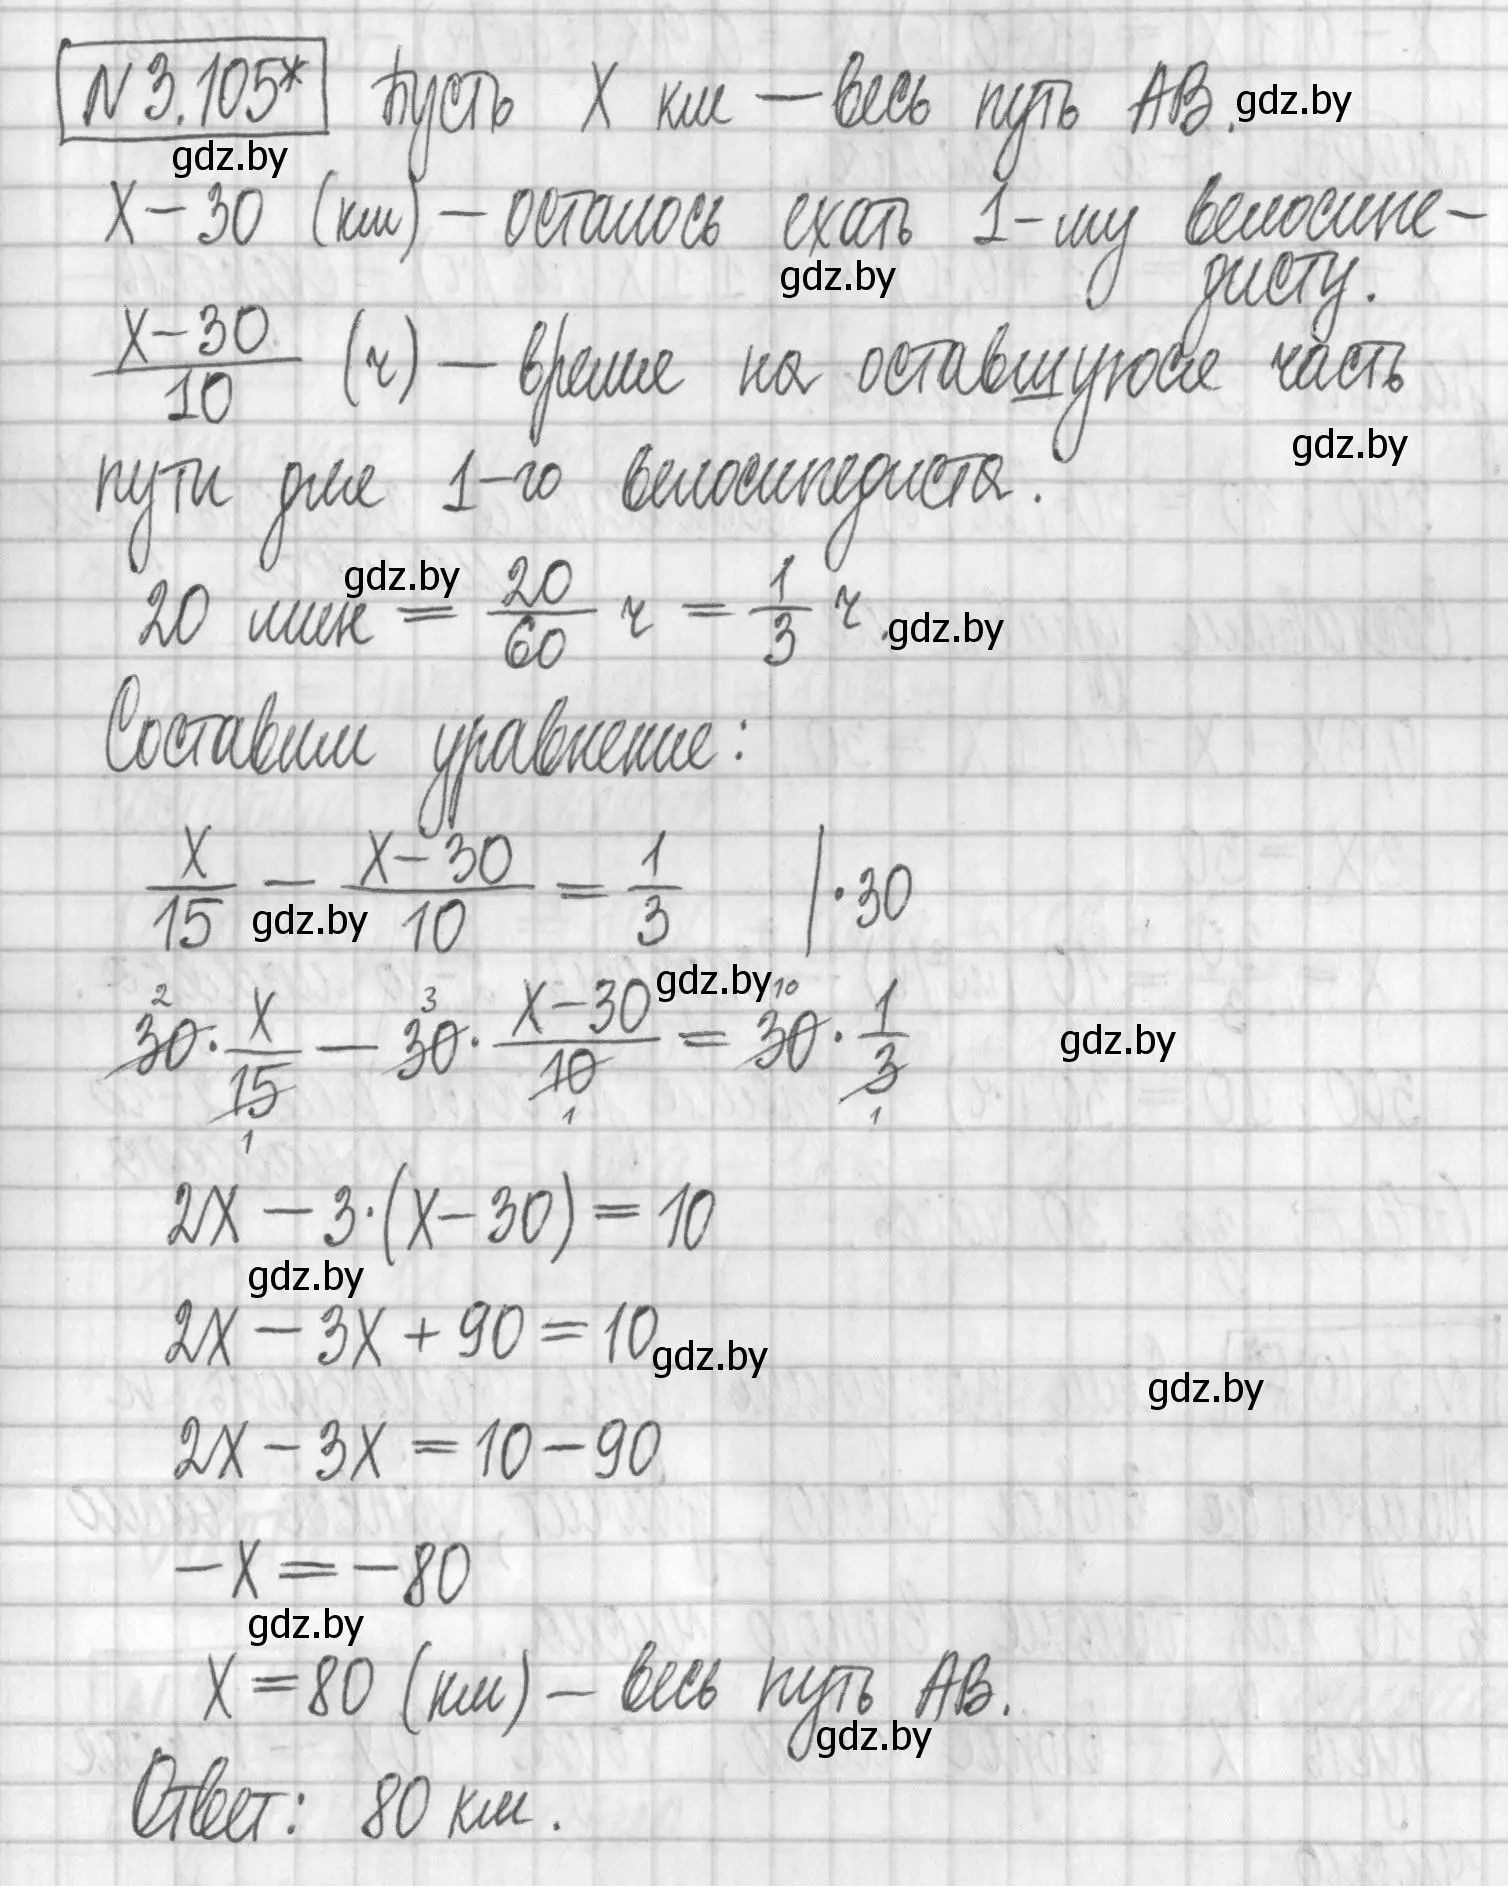 N 3.105* Пусть X км — весь путь AB. gdz.by
gdz.by
X – 30 (км) — осталось ехать 1-му велосипе-
дисту.
gdz.by
(X – 30)/10 (ч) — время на оставшуюся часть
gdz.by
пути для 1-го велосипедиста.
gdz.by
20 мин = 20/60 ч = 1/3 ч. gdz.by
Составим уравнение:
X/15 – (X – 30)/10 = 1/3 | · 30
gdz.by
gdz.by
2 3 10
30 · X/15 – 30 · (X – 30)/10 = 30 · 1/3 gdz.by
1 1 1
2X – 3 · (X – 30) = 10
gdz.by
2X – 3X + 90 = 10
gdz.by
gdz.by
2X – 3X = 10 – 90
– X = – 80
gdz.by
X = 80 (км) — весь путь AB.
gdz.by
Ответ: 80 км.